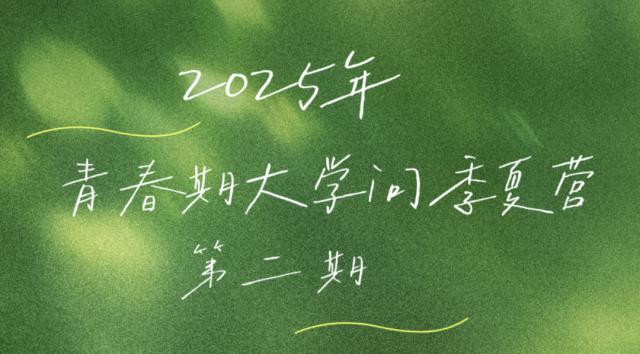 2025年
青春期大学问季夏营
第二期